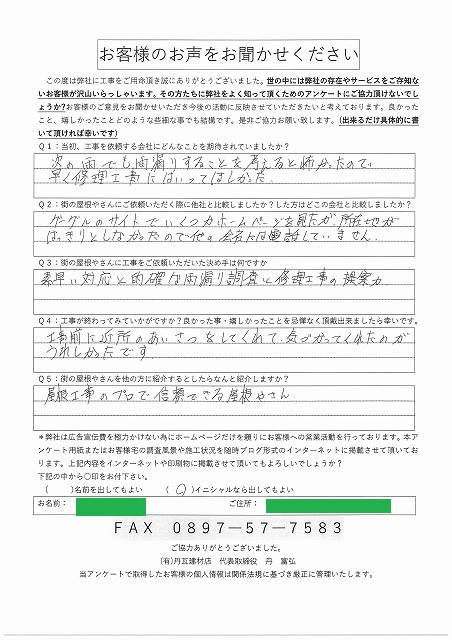 お客様のお声をお聞かせください
この度は弊社に工事をご用命頂き誠にありがとうございました。世の中には弊社の存在やサービスをご存知な
いお客様が沢山いらっしゃいます。その方たちに弊社をよく知って頂くためのアンケートにご協力頂けないでし
ょうか?お客様のご意見をお聞かせいただき今後の活動に反映させていただきたいと考えております。良かった
こと、嬉しかったことどのような些細な事でも結構です。是非ご協力お願い致します。(出来るだけ具体的に書
いて頂ければ幸いです)
Q1：当初、工事を依頼する会社にどんなことを期待されていましたか?
次の雨でも雨漏りすることを考えると怖かったので、
早く修理工事にはいってほしかった.
Q2：街の屋根やさんにご依頼いただく際に他社と比較しましたか？した方はどこの会社と比較しましたか？
グーグルのサイトでいくつかホームページを見たが、所在地が
はっきりとしなかったので他の会社には電話していません.
Q3：街の屋根やさんに工事をご依頼いただいた決め手は何ですか
素早い対応と的確な雨漏り調査と修理工事の提案力.
Q4：工事が終わってみていかがですか？良かった事・嬉しかったことを忌憚なく頂戴出来ましたら幸いです。
工事前に近所のあいさつをしてくれて、気づかってくれたのが
うれしかったです
Q5：街の屋根やさんを他の方に紹介するとしたらなんと紹介しますか？
屋根工事のプロで信頼できる屋根やさん
＊弊社は広告宣伝費を極力かけない為にホームページだけを頼りにお客様への営業活動を行っております。本ア
ンケート用紙またはお客様宅の調査風景や施工状況を随時ブログ形式のインターネットに掲載させて頂いてお
ります。上記内容をインターネットや印刷物に掲載させて頂いてもよろしいでしょうか？
下記の中から○印をお付下さい。
(　　)名前を出してもよい　　(○)イニシャルなら出してもよい
お名前：　ご住所：
FAX 0897ー57ー7583
ご協力ありがとうございました。
(有)丹瓦建材店　代表取締役　丹　富弘
当アンケートで取得したお客様の個人情報は関係法規に基づき厳正に管理いたします。